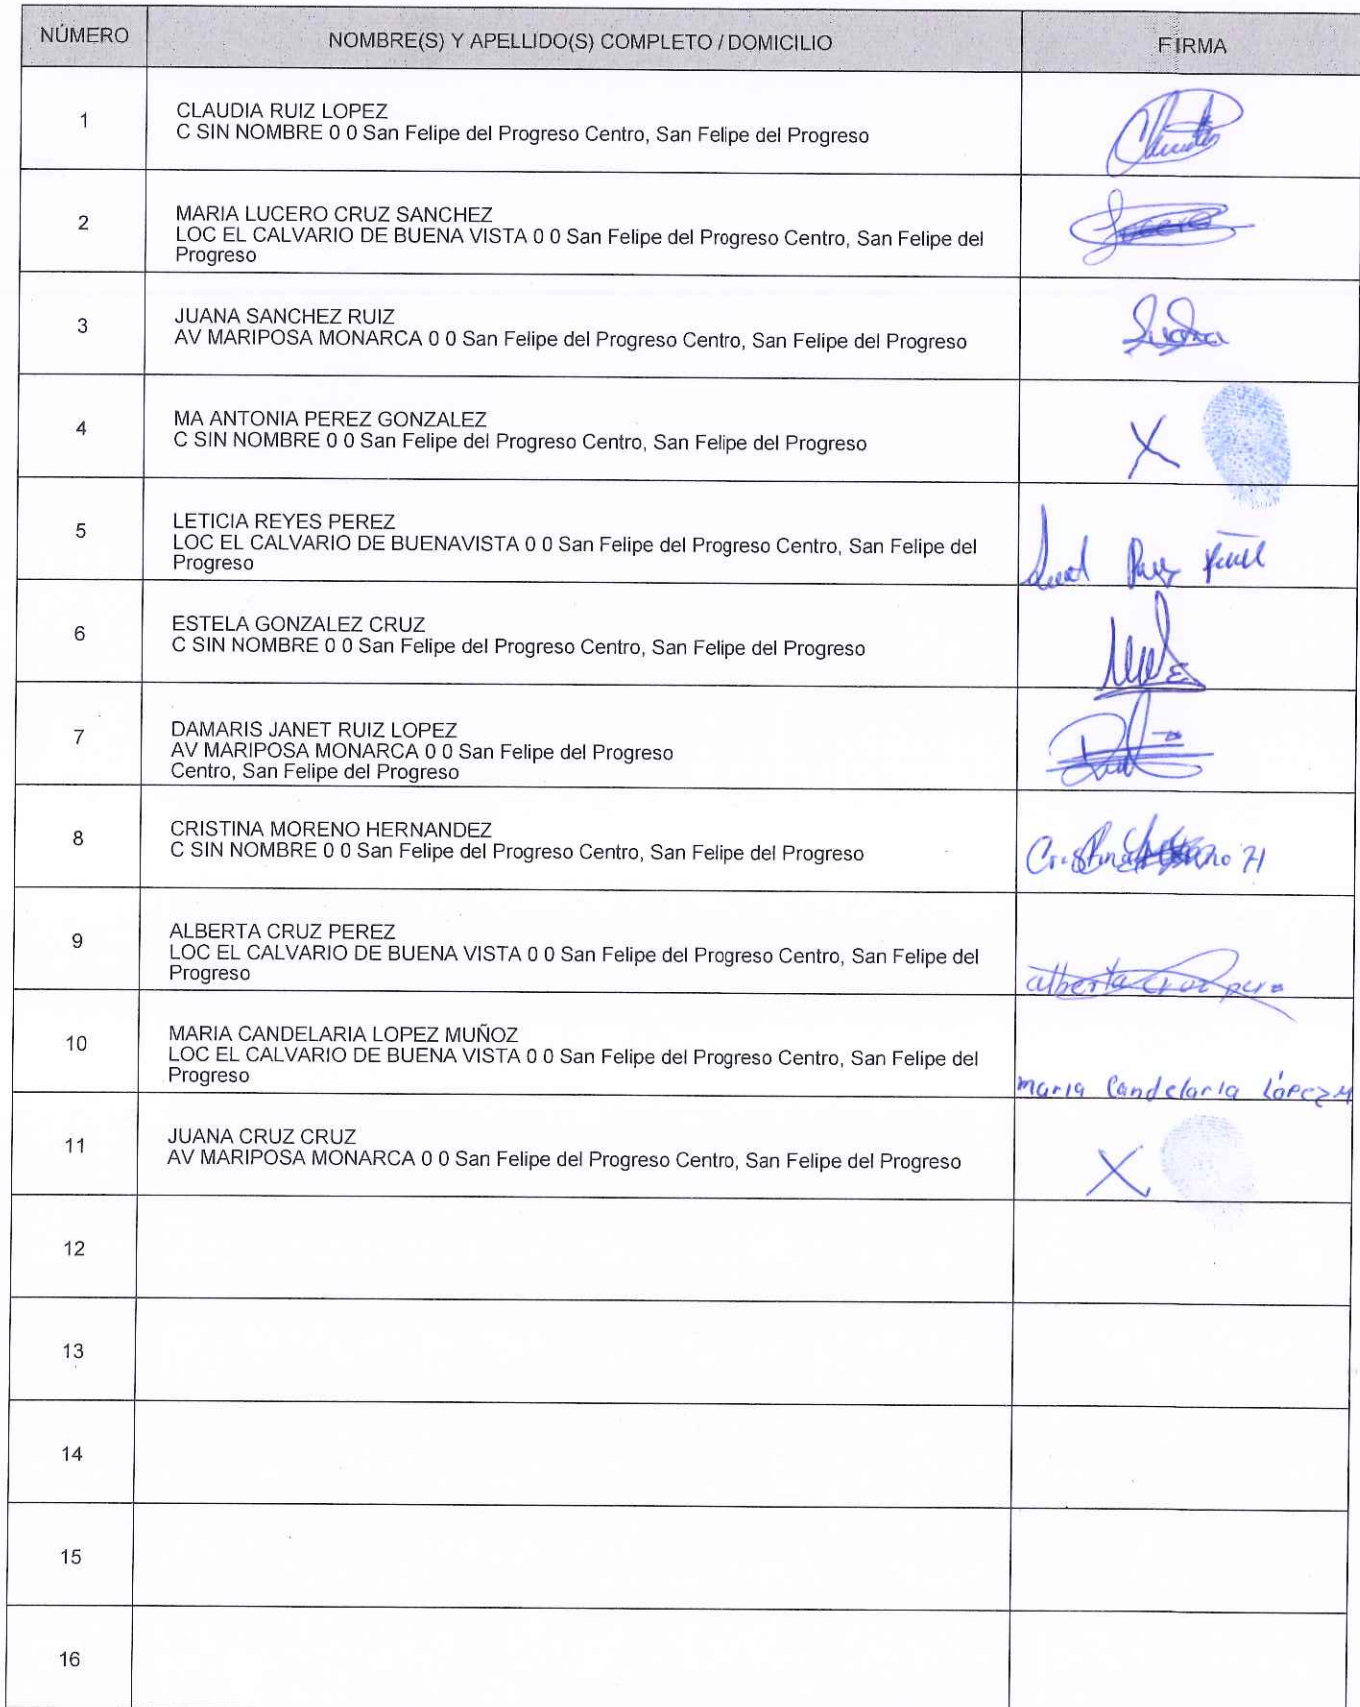 NÚMERO NOMBRE(S) Y APELLIDO(S) COMPLETO / DOMICILIO FIRMA
1 CLAUDIA RUIZ LOPEZ
C SIN NOMBRE 0 0 San Felipe del Progreso Centro, San Felipe del Progreso
2 MARIA LUCERO CRUZ SANCHEZ
LOC EL CALVARIO DE BUENA VISTA 0 0 San Felipe del Progreso Centro, San Felipe del
Progreso
3 JUANA SANCHEZ RUIZ
AV MARIPOSA MONARCA 0 0 San Felipe del Progreso Centro, San Felipe del Progreso
Juana
4 MA ANTONIA PEREZ GONZALEZ
C SIN NOMBRE 0 0 San Felipe del Progreso Centro, San Felipe del Progreso
X
5 LETICIA REYES PEREZ
LOC EL CALVARIO DE BUENAVISTA 0 0 San Felipe del Progreso Centro, San Felipe del
Progreso
6 ESTELA GONZALEZ CRUZ
C SIN NOMBRE 0 0 San Felipe del Progreso Centro, San Felipe del Progreso
7 DAMARIS JANET RUIZ LOPEZ
AV MARIPOSA MONARCA 0 0 San Felipe del Progreso
Centro, San Felipe del Progreso
8 CRISTINA MORENO HERNANDEZ
C SIN NOMBRE 0 0 San Felipe del Progreso Centro, San Felipe del Progreso
9 ALBERTA CRUZ PEREZ
LOC EL CALVARIO DE BUENA VISTA 0 0 San Felipe del Progreso Centro, San Felipe del
Progreso
alberta cruz pere
10 MARIA CANDELARIA LOPEZ MUÑOZ
LOC EL CALVARIO DE BUENA VISTA 0 0 San Felipe del Progreso Centro, San Felipe del
Progreso
maria Candelaria López M
11 JUANA CRUZ CRUZ
AV MARIPOSA MONARCA 0 0 San Felipe del Progreso Centro, San Felipe del Progreso
X
12
13
14
15
16